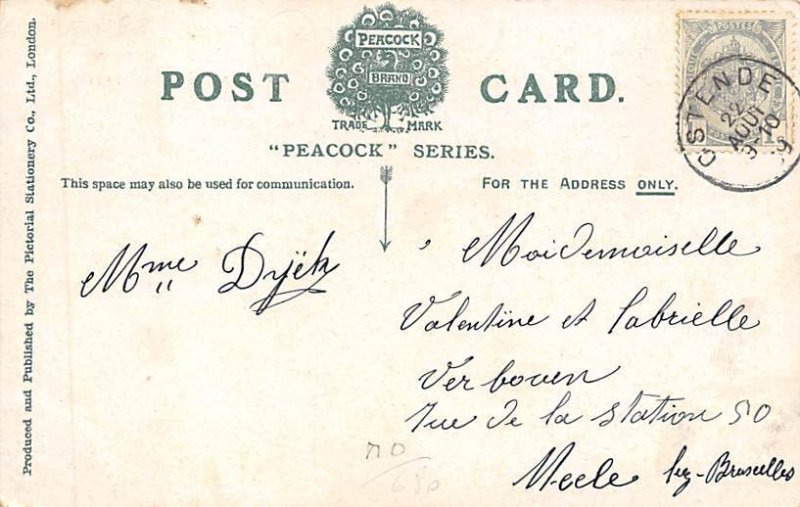 Produced and Published by The Pictorial Stationery Co., Ltd., London.
POST CARD.
PEACOCK
BRAND
TRADE MARK
"PEACOCK" SERIES.
This space may also be used for communication.
FOR THE ADDRESS ONLY.
POSTES
OSTENDE
22
AOUT
9-10
Mme
Moidemoiselle
Valentine et Gabrielle
Verboven
rue de la station 50
Meele lez-Bruxelles